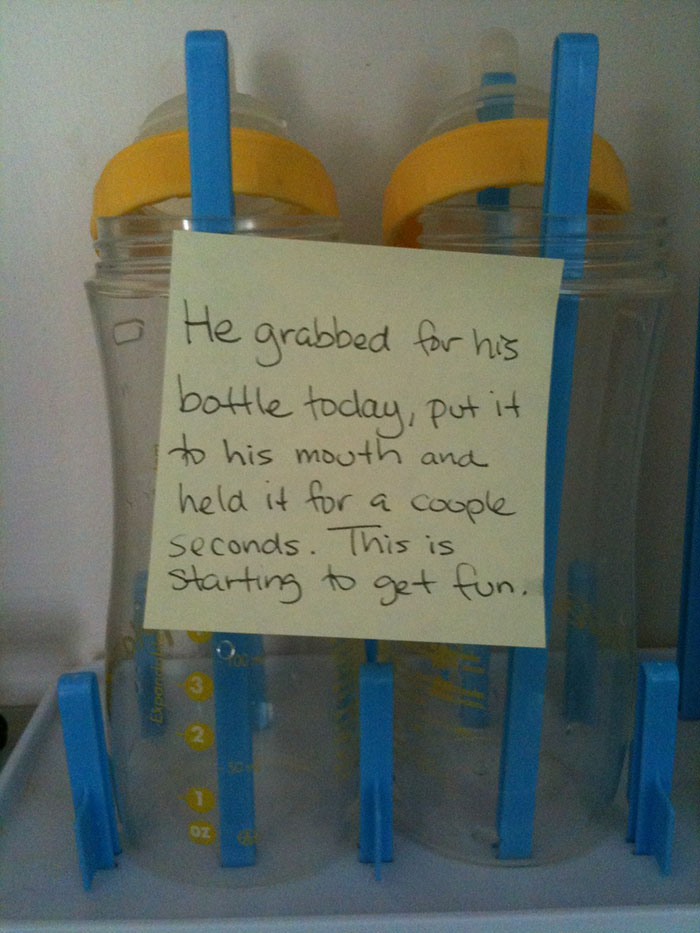 He grabbed for his
bottle today, put it
to his mouth and
held it for a couple
seconds. This is
starting to get fun.
100
3
2
50
1
oz